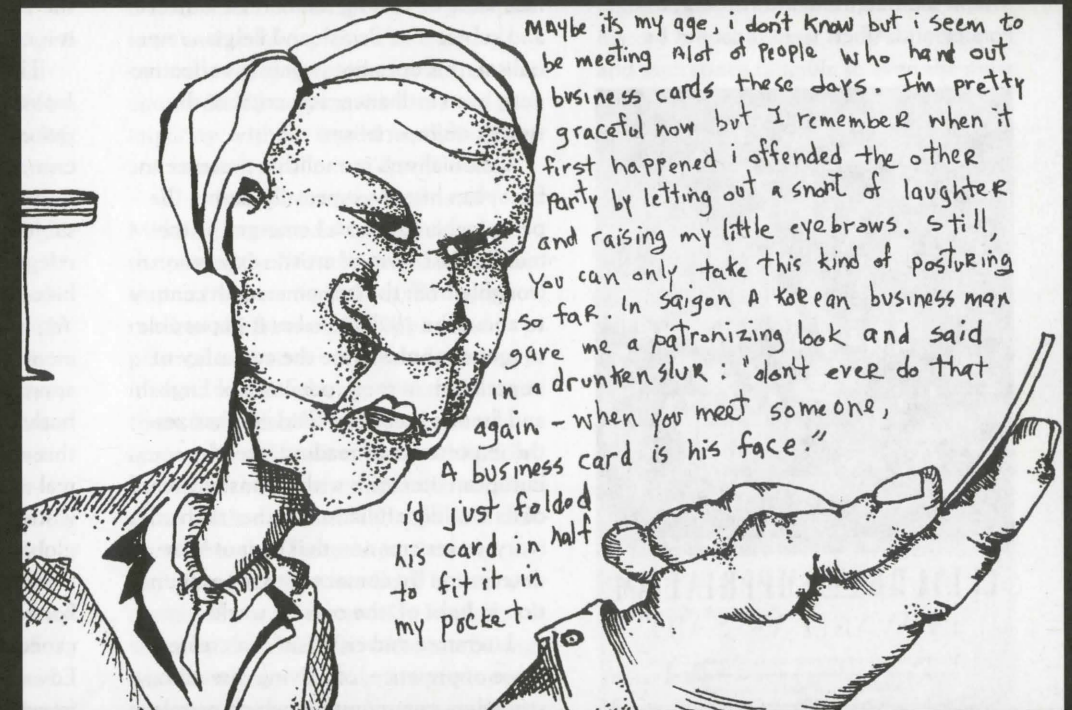 maybe it's my age, i don't know but i seem to
be meeting alot of people who hand out
business cards these days. I'm pretty
graceful now but I remember when it
first happened i offended the other
party by letting out a snort of laughter
and raising my little eyebrows. Still
you can only take this kind of posturing
so far. In saigon a korean business man
gave me a patronizing look and said
in a drunken slur: "don't ever do that
again - when you meet someone,
A business card is his face"
i'd just folded
his card in half
to fit it in
my pocket.